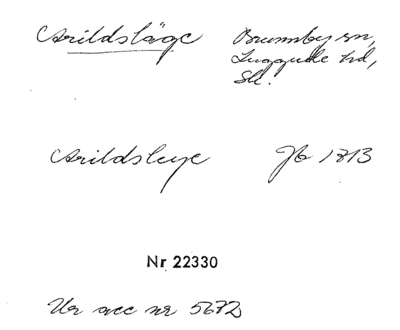 Arildsläge Brunnby sn,
Luggude hd,
Sk.
Arildsleye Jb 1813
Nr 22330
Ur acc nr 5672